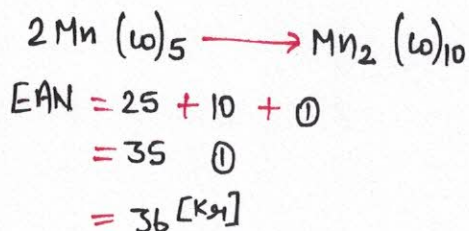 2Mn (CO)5 ⟶ Mn2 (CO)10
EAN = 25 + 10 + ①
= 35 ①
= 36 [Kr]